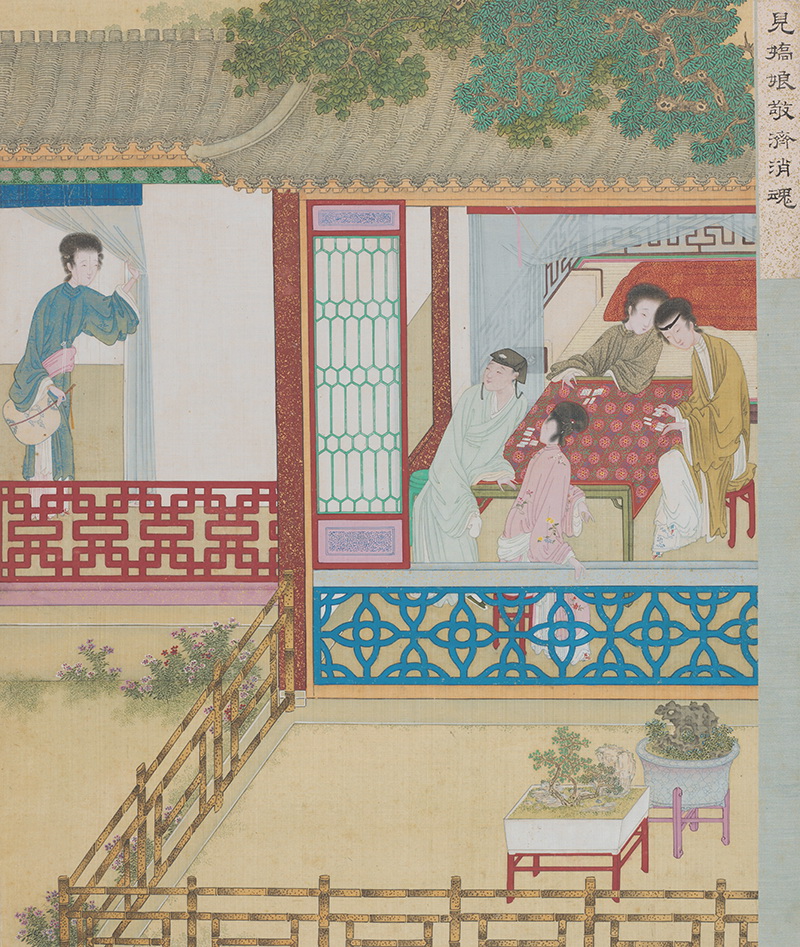 見嬌娘敬濟消魂